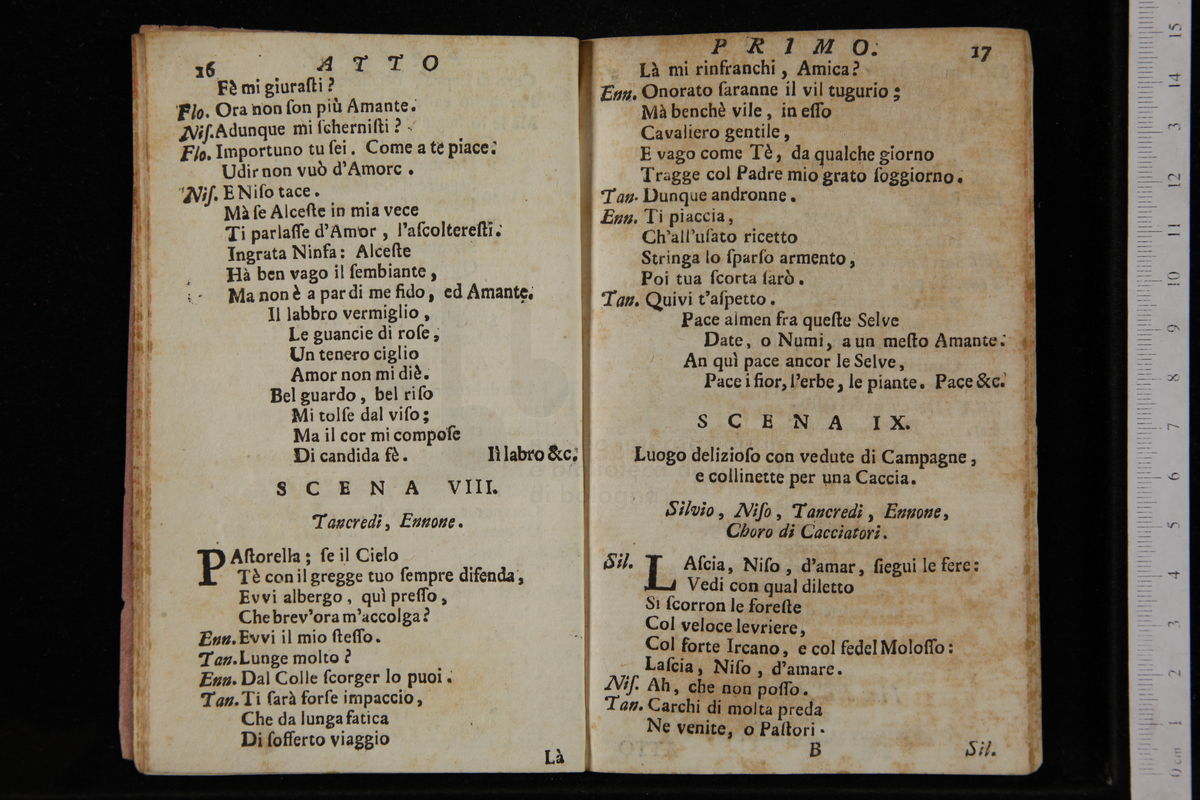 16 ATTO
Fè mi giuraſti?
Flo. Ora non ſon più Amante.
Niſ. Adunque mi ſcherniſti?
Flo. Importuno tu ſei. Come a te piace.
Udir non vuò d'Amore.
Niſ. E Niſo tace.
Mà ſe Alceſte in mia vece
Ti parlaſſe d'Amor, l'aſcoltereſti.
Ingrata Ninfa: Alceſte
Hà ben vago il ſembiante,
Ma non è a par di me fido, ed Amante.
Il labbro vermiglio,
Le guancie di roſe,
Un tenero ciglio
Amor non mi diè.
Bel guardo, bel riſo
Mi tolſe dal viſo;
Ma il cor mi compoſe
Di candida fè. Il labro &c.
SCENA VIII.
Tancredi, Ennone.
PAſtorella; ſe il Cielo
Tè con il gregge tuo ſempre difenda,
Evvi albergo, quì preſſo,
Che brev'ora m'accolga?
Enn. Evvi il mio ſteſſo.
Tan. Lunge molto?
Enn. Dal Colle ſcorger lo puoi.
Tan. Ti ſarà forſe impaccio,
Che da lunga fatica
Di ſofferto viaggio
Là
PRIMO. 17
Là mi rinfranchi, Amica?
Enn. Onorato ſaranne il vil tugurio;
Mà benchè vile, in eſſo
Cavaliero gentile,
E vago come Tè, da qualche giorno
Tragge col Padre mio grato ſoggiorno.
Tan. Dunque andronne.
Enn. Ti piaccia,
Ch'all'uſato ricetto
Stringa lo ſparſo armento,
Poi tua ſcorta ſarò.
Tan. Quivi t'aſpetto.
Pace almen fra queſte Selve
Date, o Numi, a un meſto Amante.
An quì pace ancor le Selve,
Pace i fior, l'erbe, le piante. Pace &c.
SCENA IX.
Luogo delizioſo con vedute di Campagne,
e collinette per una Caccia.
Silvio, Niſo, Tancredi, Ennone,
Choro di Cacciatori.
Sil. LAſcia, Niſo, d'amar, ſiegui le fere:
Vedi con qual diletto
Si ſcorron le foreſte
Col veloce levriere,
Col forte Ircano, e col fedel Moloſſo:
Laſcia, Niſo, d'amare.
Niſ. Ah, che non poſſo.
Tan. Carchi di molta preda
Ne venite, o Paſtori.
B Sil.
0 cm 1 2 3 4 5 6 7 8 9 10 11 12 13 14 15